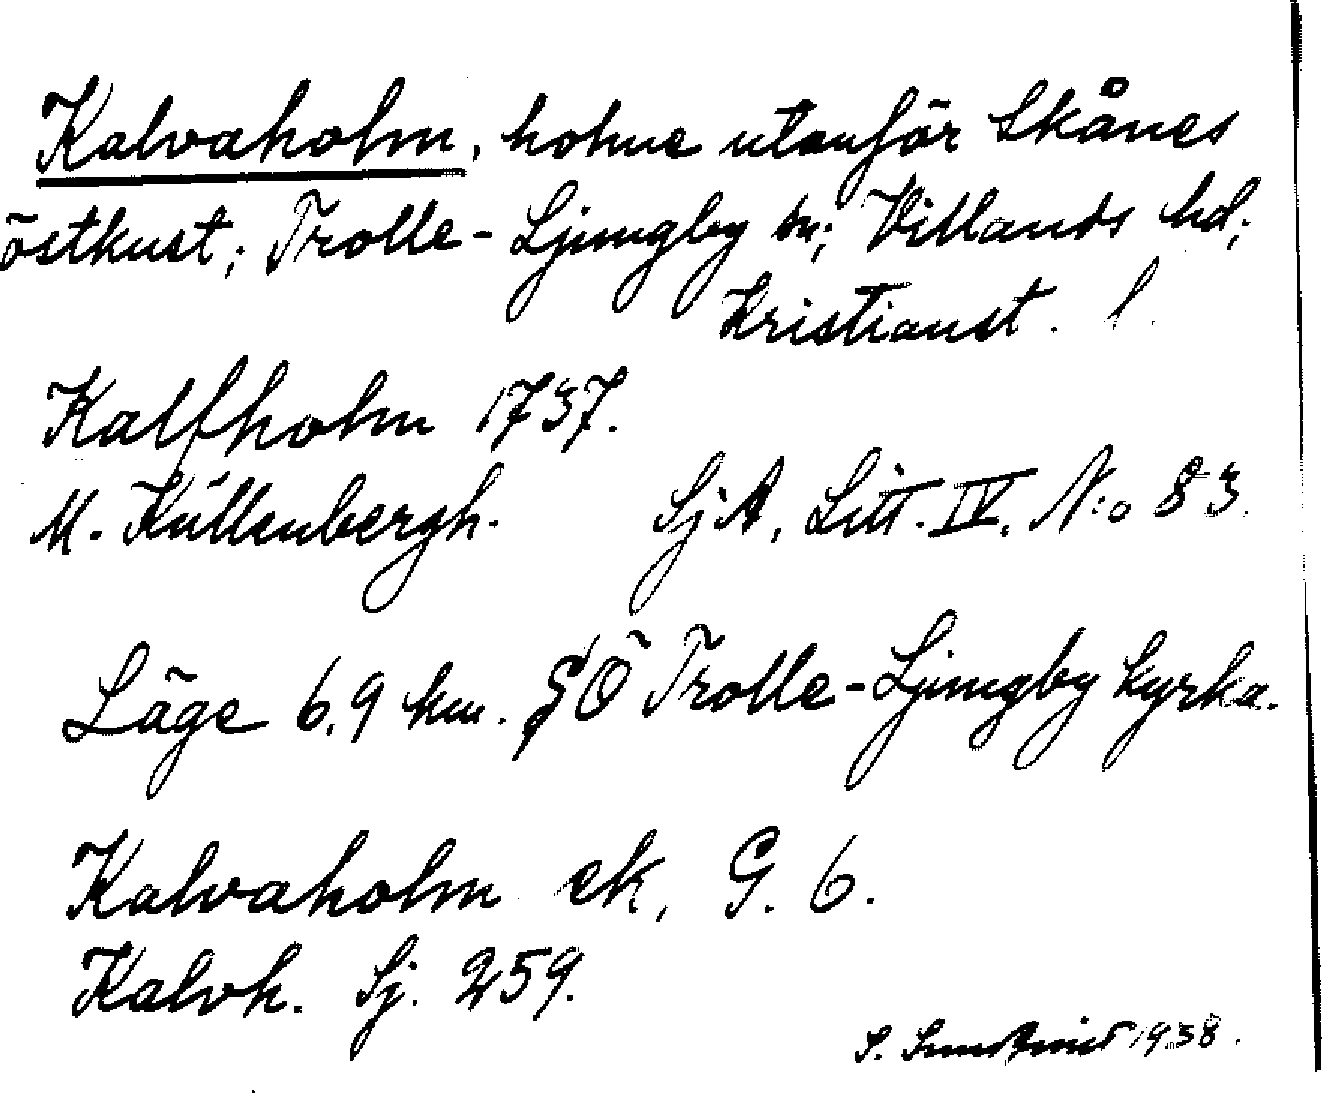 Kalvaholm, holme utanför Skånes
östkust; Trolle-Ljungby sn; Villands hd;
Kristianst. l.
Kalfholm 1737.
M. Küllenbergh. SjA, Litt. IV. N:o 83.
Läge 6,9 km. SÖ Trolle-Ljungby kyrka.
Kalvaholm ek, G. 6.
Kalvh. Sj. 259.
S. 1938.